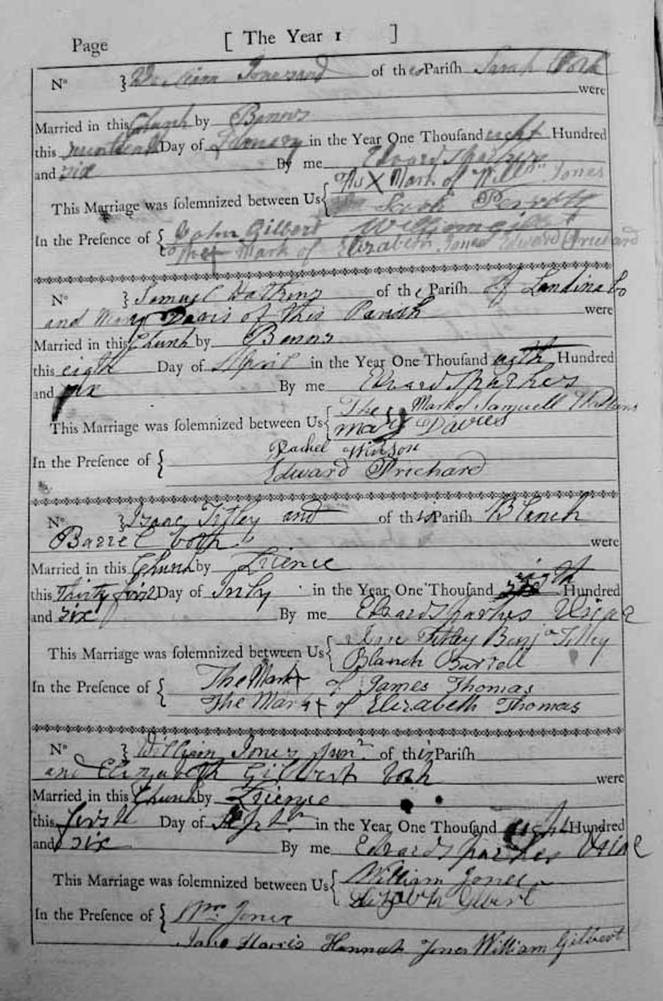 Page [ The Year 1 ]
Nº } William Jones and of the Parish Sarah both
were
Married in this Church by Banns
this Day of January in the Year One Thousand eight Hundred
and six By me Edward Sparkes
This Marriage was solemnized between Us { This X Mark of Willm Jones
Sarah
In the Presence of { John Gilbert William Gilbert
The + Mark of Elizabeth Jones Edward Prichard
Nº } Samuel Watkins of the Parish of Landinabo
and Mary Davis of this Parish were
Married in this Church by Banns
this eigth Day of April in the Year One Thousand Hundred
and six By me Edward Sparkes
This Marriage was solemnized between Us { The Mark of Samuell Watkins
Mary Davies
In the Presence of { Rachel Winson
Edward Prichard
Nº } Isaac Titley and of this Parish Blanch
Barrel both were
Married in this Church by Licence
this Thirty first Day of July in the Year One Thousand Hundred
and six By me Edward Sparkes Vicar
This Marriage was solemnized between Us { Titley Benjn Titley
Blanch Barrell
In the Presence of { The Mark + of James Thomas
The Mark + of Elizabeth Thomas
Nº } William Jones Junr. of this Parish
and Elizabeth Gilbert both were
Married in this Church by Licence
this first Day of Septr in the Year One Thousand eight Hundred
and six By me Edward Sparkes Vicar
This Marriage was solemnized between Us { William Jones
Elizabeth Gilbert
In the Presence of { Wm. Jones
Jane Harris Hannah Jones William Gilbert